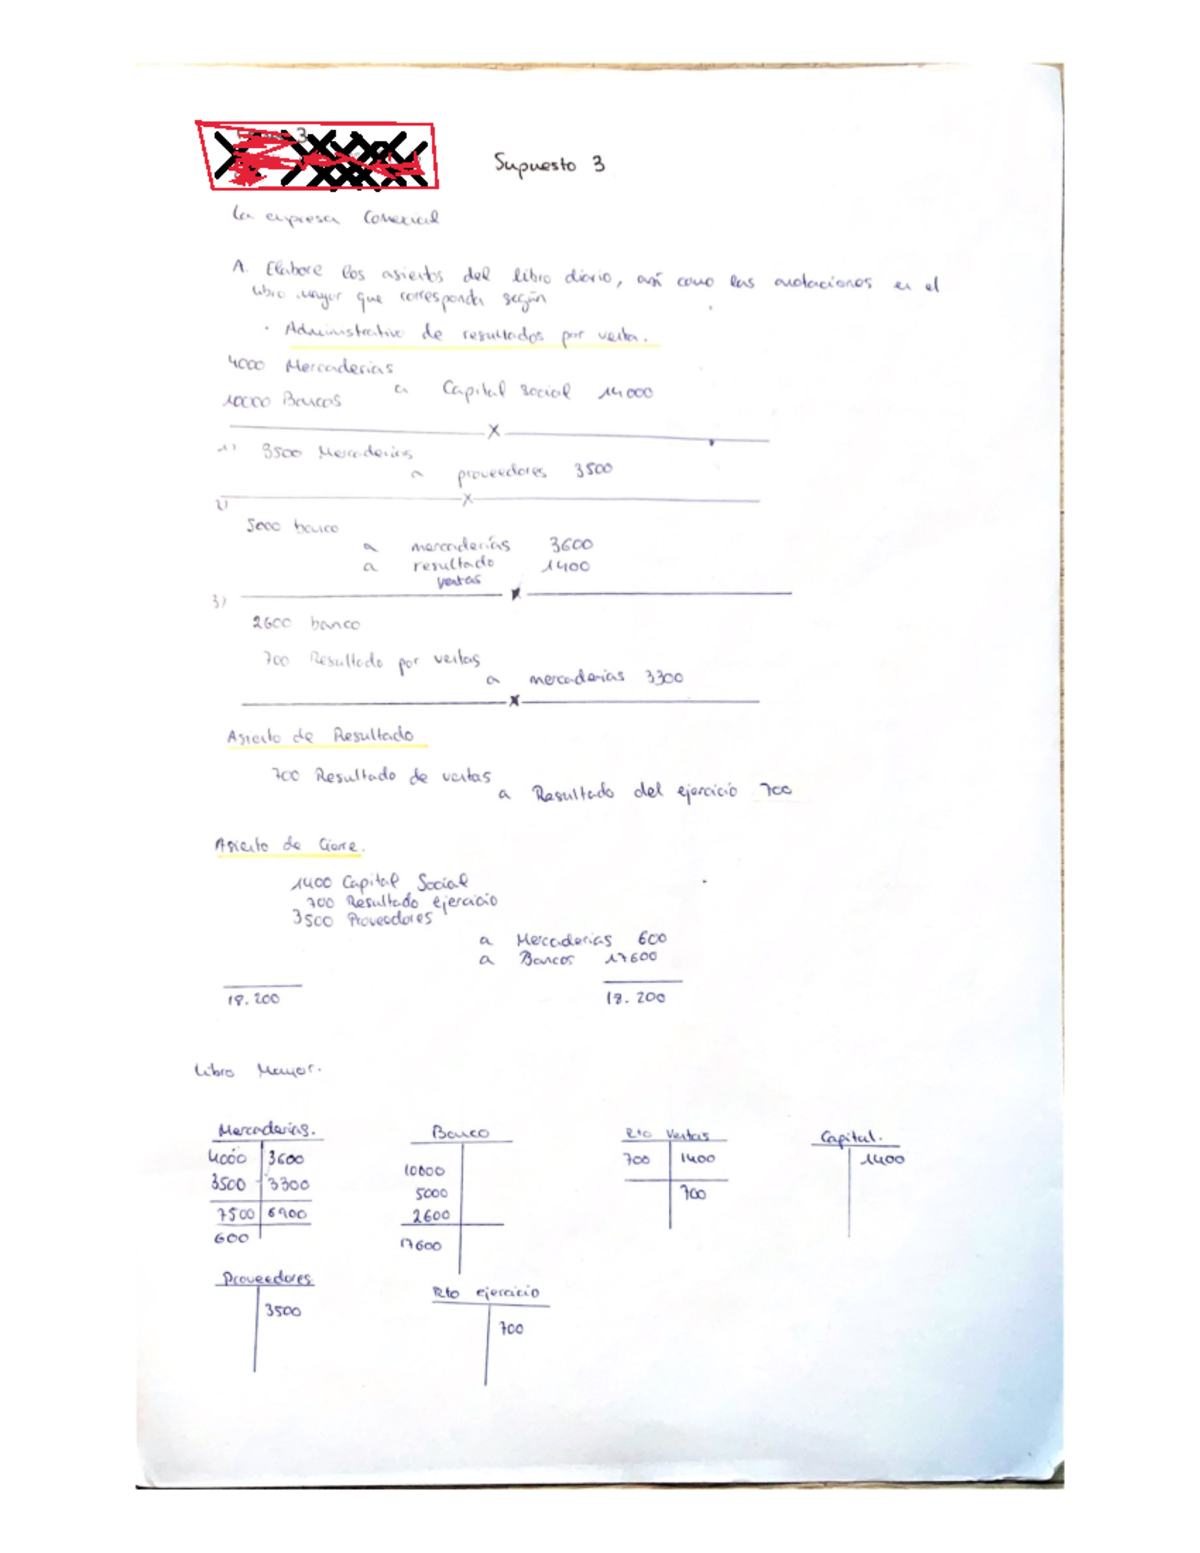 3
Supuesto 3
La empresa Comercial
A. Elabore los asientos del libro diario, así como las anotaciones en el
libro mayor que corresponda según
· Administrativo de resultados por venta.
4000 Mercaderias
a Capital social 14000
10000 Bancos
x
1) 3500 Mercaderias
a proveedores 3500
x
2)
5000 banco
a mercaderías 3600
a resultado 1400
ventas
x
3)
2600 banco
700 Resultado por ventas
a mercaderias 3300
x
Asiento de Resultado
700 Resultado de ventas
a Resultado del ejercicio 700
Asiento de Cierre.
1400 Capital Social
700 Resultado ejercicio
3500 Proveedores
a Mercaderias 600
a Bancos 17600
18.200 18.200
Libro Mayor.
Mercaderias. Banco Rto Ventas Capital.
4000 3600 10000 700 1400 1400
3500 3300 5000 700
7500 6900 2600
600 17600
Proveedores Rto ejercicio
3500 700